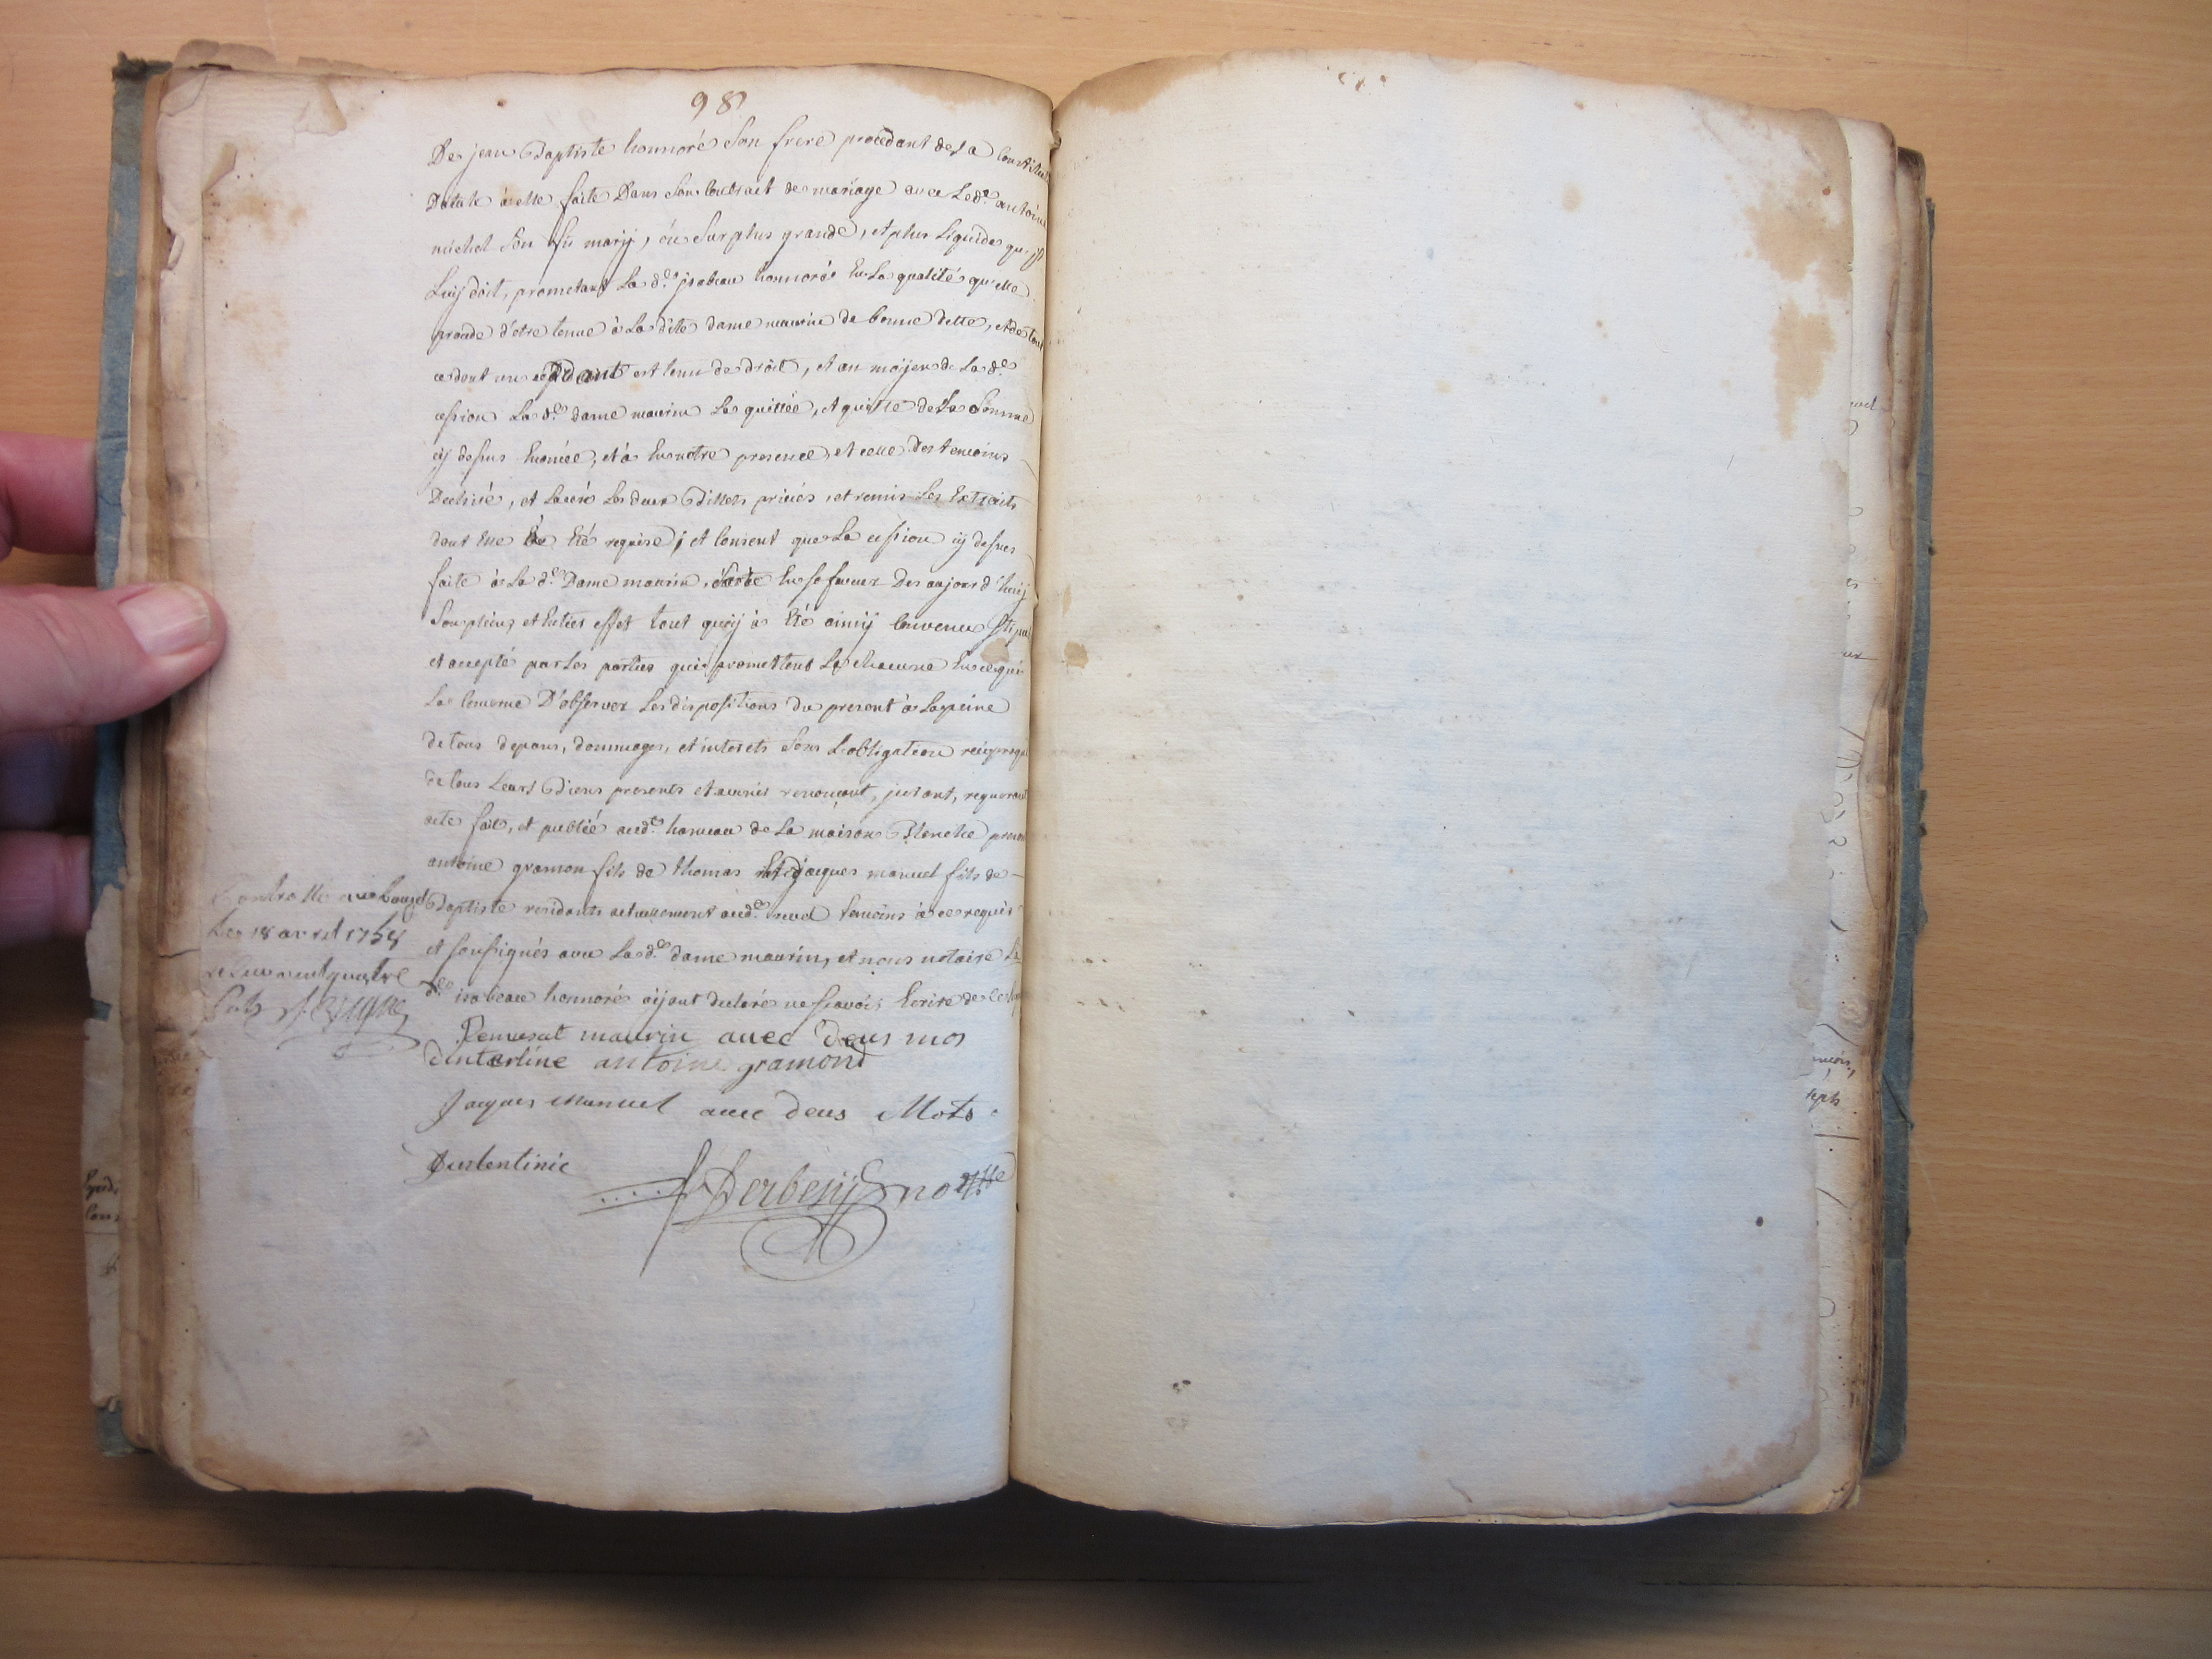 98
De jean Baptiste honnoré son frere procedant de la constitu
Datale à elle faite Dans son contract de mariage avec Led.t antoine
michel son fu mary, ou sur plus grande, et plus Liquide qu'il
Luy doit, prometant La d.e isabeau honnoré En La qualité qu'elle
procede d'etre tenue à La dite dame maurin de bonne dette, et de tout
ce dont un cedant est tenu de droit, et au moyen de La d.e
cession La d.e dame maurin La quittée, et quitte de La somme
cy dessus Enoncée, et à En notre presence, et celle Des temoins
Dechiré, et Laceré Les deux Billets privés, et remis Les Extraits
dont Elle à Eté requise; et Consent que La cession cy dessus
faite à La d.e Dame maurin, sorte En sa faveur Des aujourd'huy
Son plein, et Entier effet tout quoy à Eté ainsy Convenu stipu
et accepté par Les parties qui promettent La chacune En ce qui
La Concerne D'observer Les dispositions Du present à La peine
de tous depans, dommages, et interets Sous L'obligation reciproque
de tous Leurs Biens presents et avenir renonçant, jurant, requerant
acte fait, et publié aud.t hameau de La maison Blanche presents
antoine gramon fils de thomas Et jacques manuel fils de
Baptiste residants actuellement aud.t temoins à ce requis
et soussignés avec La d.e dame maurin, et nous notaire La
d.e isabeau honnoré ayant declaré ne sçavoir Ecrire de ce
Controllé
Le 18 avril 1758
Remusat maurin avec Deus mos
dintarline antoine gramond
Jacques Manuel avec deus Mots
Dentenlinie
Derbesy no.re